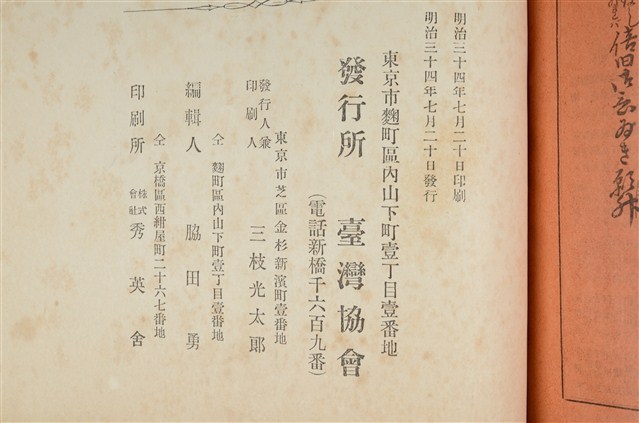 明治三十四年七月二十日印刷
明治三十四年七月二十日發行
東京市麴町區內山下町壹丁目壹番地
發行所　臺灣協會
(電話新橋千六百九番)
東京市芝區金杉新濱町壹番地
發行人兼印刷人　三枝光太郎
仝　麴町區內山下町壹丁目壹番地
編輯人　脇田勇
仝　京橋區西紺屋町二十六七番地
印刷所　株式會社　秀英舍